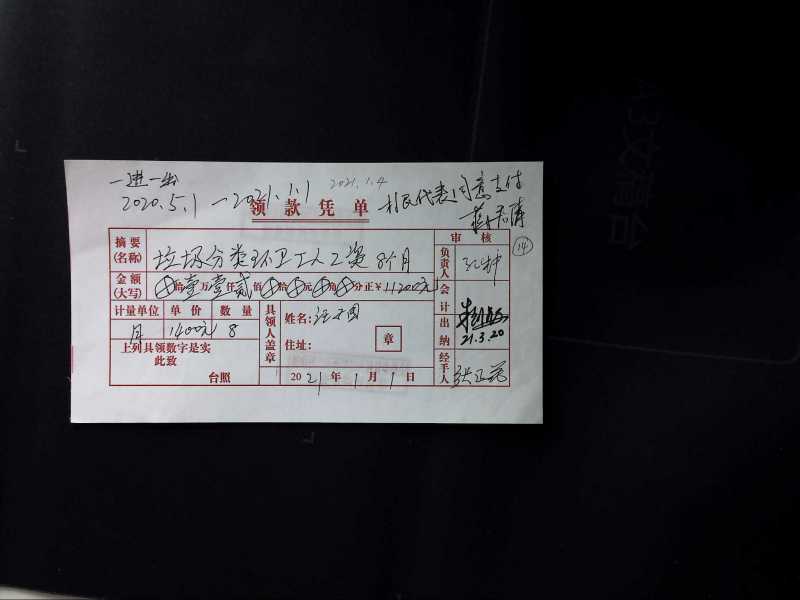 一进一出
2020.5.1 —2021.1.1
2021.1.4
村民代表同意支付
领款凭单
14
摘要(名称) 垃圾分类环卫工人工资 8个月
审核
负责人
金额(大写) 拾壹万壹仟贰佰拾元角分正¥11200元
会计
计量单位 单价 数量
月 1400元 8
具领人盖章
姓名:
住址:
章
出纳
21.3.20
上列具领数字是实
此致
台照
2021年1月1日
经手人
A3文稿台